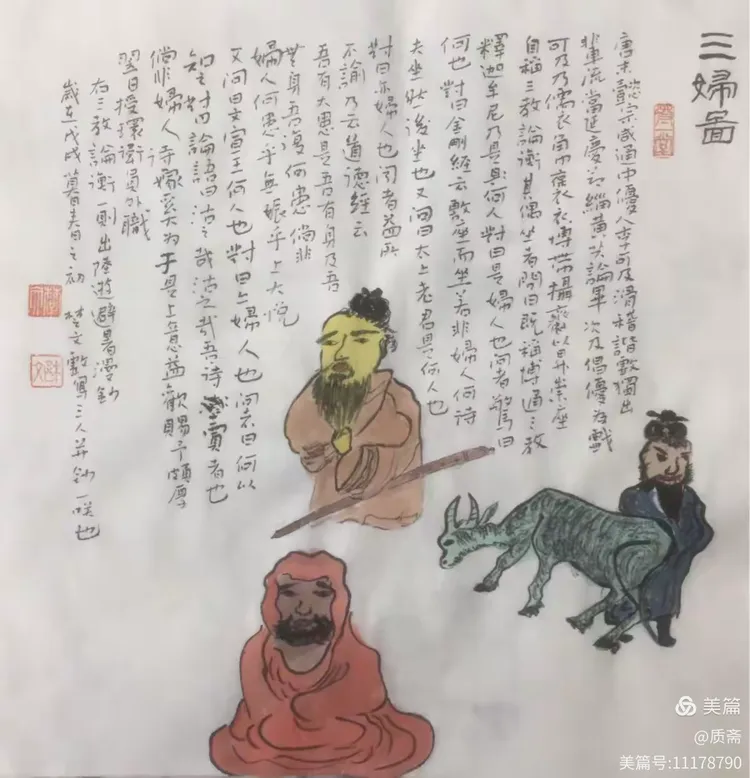 三婦圖
唐末懿宗咸通中優人李可及滑稽諧戲獨出
輩流當延慶節緇黄論畢次及倡優为戲
可及乃儒衣岸巾褒衣博帶攝齋以昇崇座
自稱三教論衡其偶坐者問曰既稱博通三教
釋迦牟尼乃是何人對曰是婦人問者驚曰
何也對曰金剛經云敷座而坐若非婦人何待
夫坐然後坐也又問曰太上老君是何人也
對曰亦婦人也問者益所
不諭乃云道德經云
吾有大患是吾有身及吾
無身吾復何患倘非
婦人何患乎無娠乎上大悦
又問曰文宣王何人也對曰亦婦人也問者曰何以
知之對曰論語曰沽之哉沽之哉吾待賈者也
倘非婦人待嫁奚为于是上意益歡賜予頗厚
翌日授環衛員外職
右三教論衡一則出陸游避暑漫鈔
歲在戊戌暮春之初 楚文戲寫三人并鈔一咲也
美篇
@质斋
美篇号:11178790